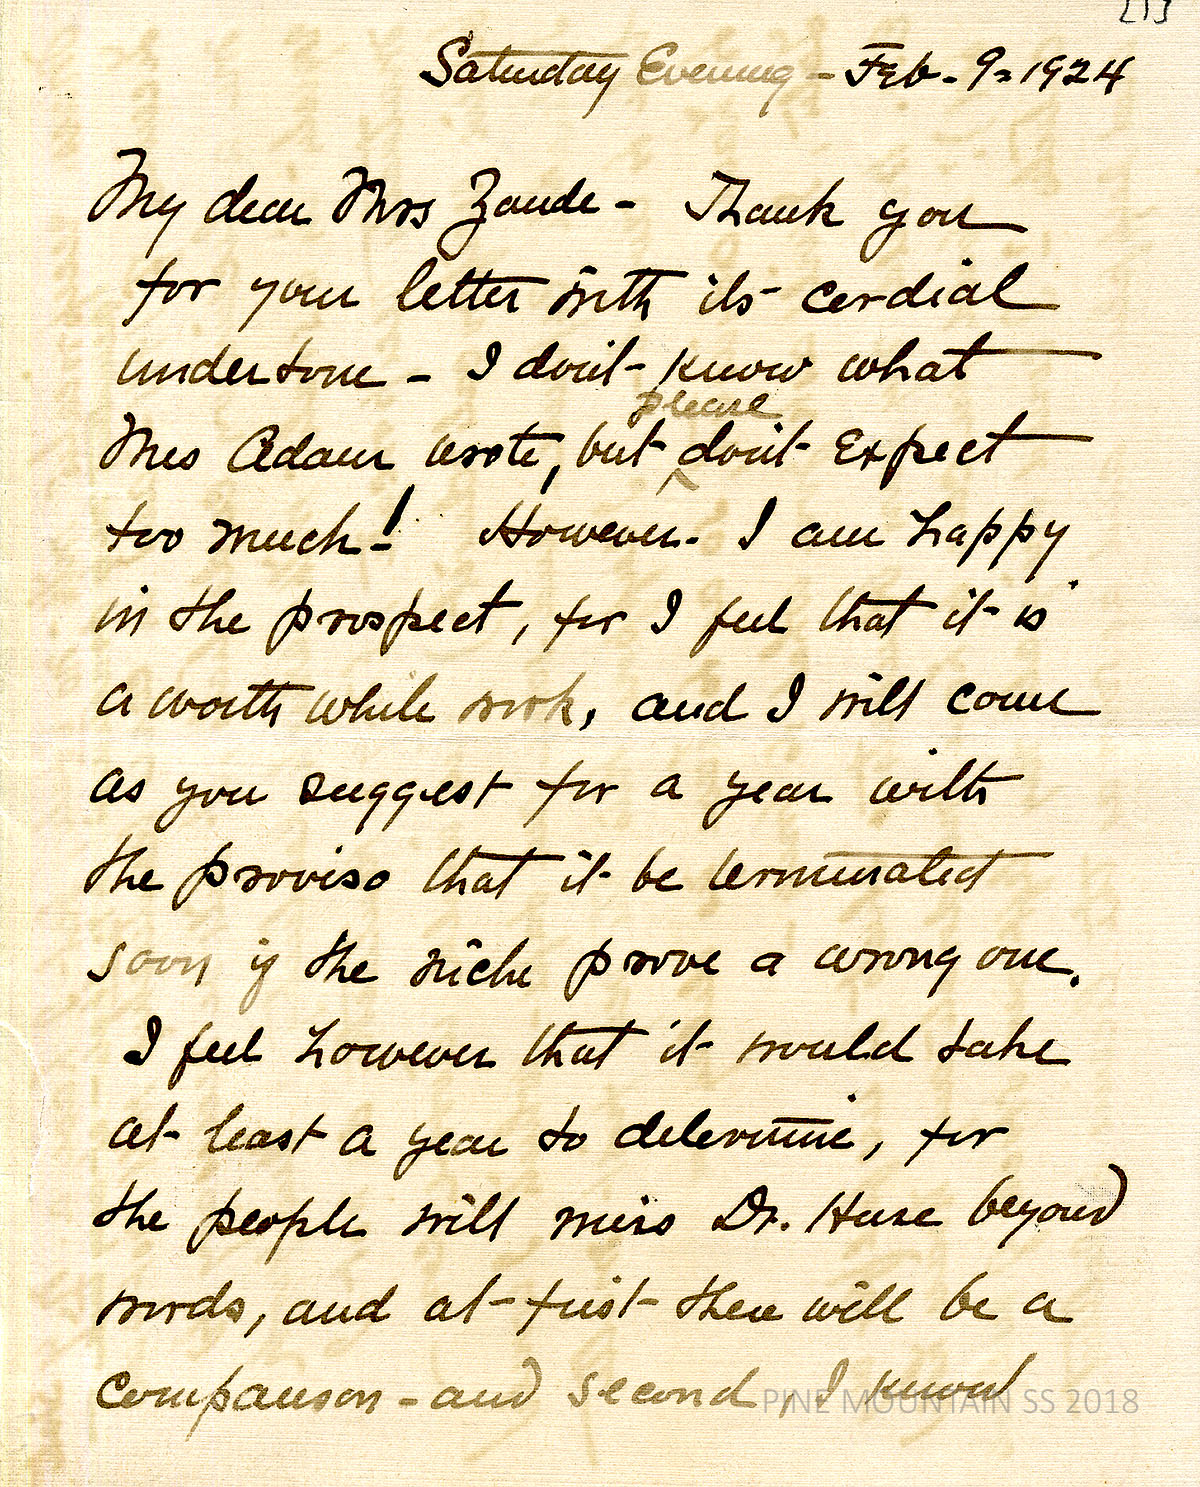 [1]
Saturday Evening - Feb - 9 = 1924
My dear Mrs Zande - Thank you
for your letter with its cordial
undertone - I don't know what
please
Miss Adam wrote, but don't Expect
too much! However - I am happy
in the prospect, for I feel that it is
a worth while work, and I will come
as you suggest for a year with
the proviso that it be terminated
soon if the niche prove a wrong one.
I feel however that it would take
at least a year to determine, for
the people will miss Dr. Huse beyond
words, and at first there will be a
comparison - and second, I know
PINE MOUNTAIN SS 2018